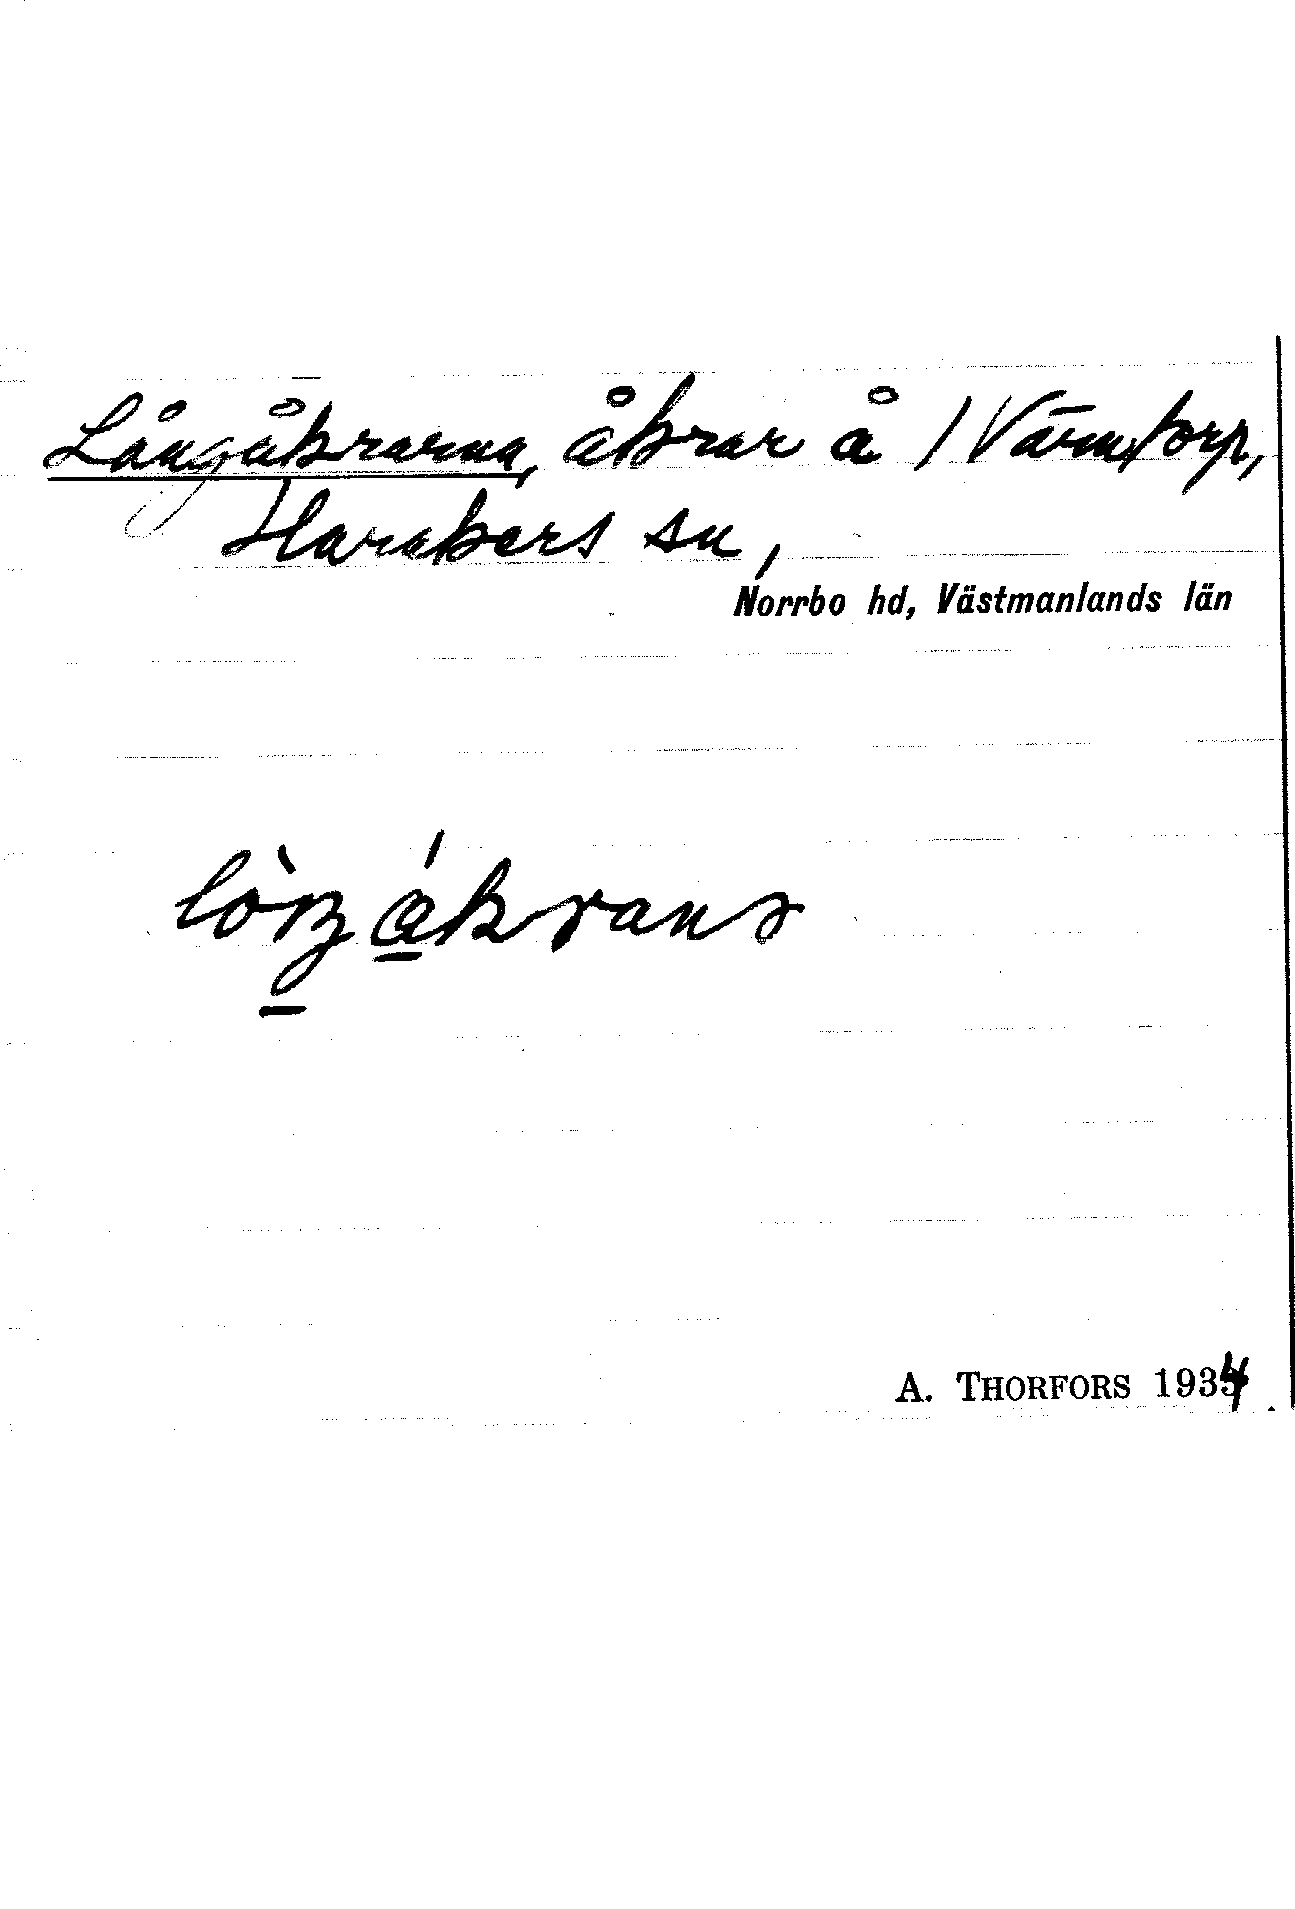 Långåkrarna, åkrar å /Värmtorp,
Harakers sn,
Norrbo hd, Västmanlands län
A. THORFORS 1934